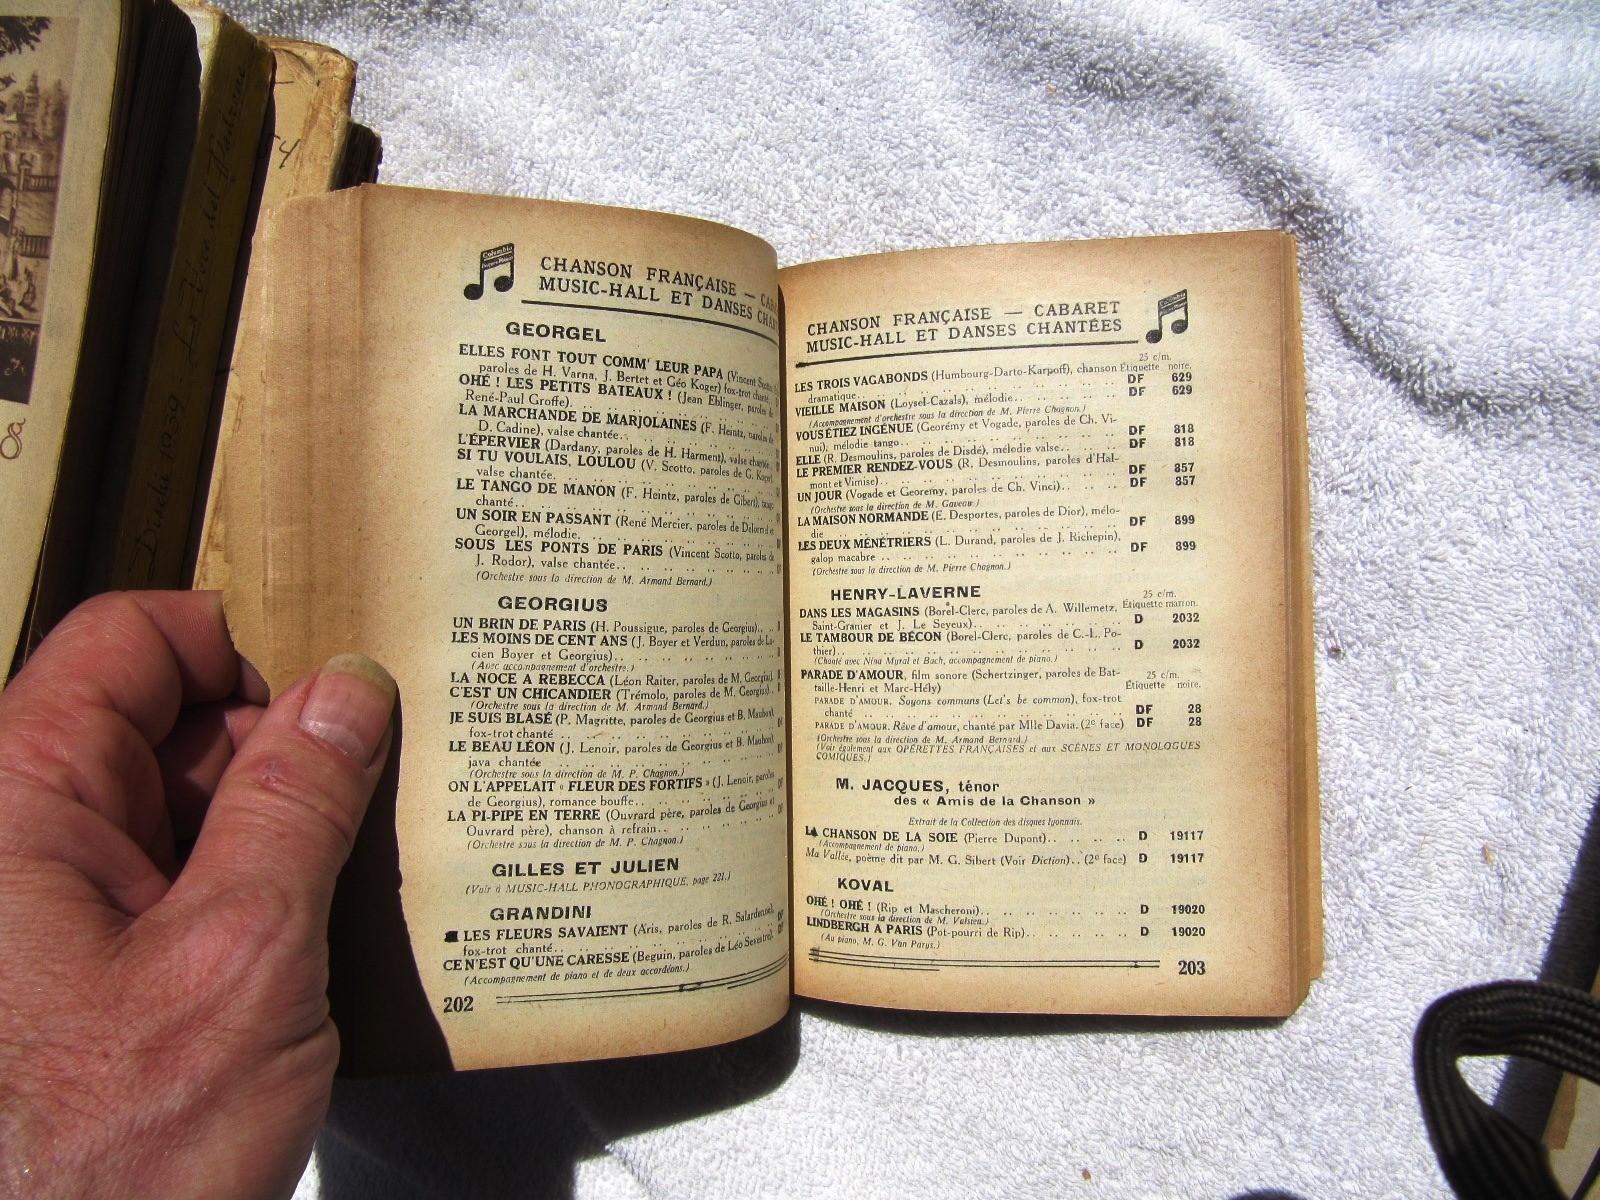 Dischi 1939 - La Voce del Padrone
Columbia
CHANSON FRANÇAISE —
MUSIC-HALL ET DANSES
GEORGEL
ELLES FONT TOUT COMM' LEUR PAPA (Vincent
paroles de H. Varna, J. Bertet et Géo Koger) fox-trot
OHÉ ! LES PETITS BATEAUX ! (Jean Eblinger, paroles de
René-Paul Groffe)
LA MARCHANDE DE MARJOLAINES (F. Heintz, paroles de
D. Cadine), valse chantée
L'ÉPERVIER (Dardany, paroles de H. Harment), valse
SI TU VOULAIS, LOULOU (V. Scotto, paroles de G. Koger)
valse chantée
LE TANGO DE MANON (F. Heintz, paroles de Gibert), tango
chanté
UN SOIR EN PASSANT (René Mercier, paroles de et
Georgel), mélodie
SOUS LES PONTS DE PARIS (Vincent Scotto, paroles de
J. Rodor), valse chantée
(Orchestre sous la direction de M. Armand Bernard.)
GEORGIUS
UN BRIN DE PARIS (H. Poussigue, paroles de Georgius)
LES MOINS DE CENT ANS (J. Boyer et Verdun, paroles de Lu-
cien Boyer et Georgius)
(Avec accompagnement d'orchestre.)
LA NOCE A REBECCA (Léon Raiter, paroles de M. Georgius)
C'EST UN CHICANDIER (Trémolo, paroles de M. Georgius)
(Orchestre sous la direction de M. Armand Bernard.)
JE SUIS BLASÉ (P. Magritte, paroles de Georgius et B. Maubon),
fox-trot chanté
LE BEAU LÉON (J. Lenoir, paroles de Georgius et B. Maubon)
java chantée
(Orchestre sous la direction de M. P. Chagnon.)
ON L'APPELAIT « FLEUR DES FORTIFS » (J. Lenoir, paroles
de Georgius), romance bouffe
LA PI-PIPE EN TERRE (Ouvrard père, paroles de Georgius et
Ouvrard père), chanson à refrain
(Orchestre sous la direction de M. P. Chagnon.)
GILLES ET JULIEN
(Voir à MUSIC-HALL PHONOGRAPHIQUE, page 221.)
GRANDINI
LES FLEURS SAVAIENT (Aris, paroles de R. Salardenne),
fox-trot chanté
CE N'EST QU'UNE CARESSE (Beguin, paroles de Léo Sevestre)
(Accompagnement de piano et de deux accordéons.)
202
CHANSON FRANÇAISE — CABARET
MUSIC-HALL ET DANSES CHANTÉES
Columbia
25 c/m.
Étiquette noire.
LES TROIS VAGABONDS (Humbourg-Darto-Karpoff), chanson
dramatique.. DF 629
VIEILLE MAISON (Loysel-Cazals), mélodie.. DF 629
(Accompagnement d'orchestre sous la direction de M. Pierre Chagnon.)
VOUS ÉTIEZ INGÉNUE (Georémy et Vogade, paroles de Ch. Vi-
nui), mélodie tango.. DF 818
ELLE (R. Desmoulins, paroles de Disdé), mélodie valse.. DF 818
LE PREMIER RENDEZ-VOUS (R. Desmoulins, paroles d'Hal-
mont et Vimise).. DF 857
UN JOUR (Vogade et Georemy, paroles de Ch. Vinci).. DF 857
(Orchestre sous la direction de M. Gaveau.)
LA MAISON NORMANDE (E. Desportes, paroles de Dior), mélo-
die .. DF 899
LES DEUX MÉNÉTRIERS (L. Durand, paroles de J. Richepin),
galop macabre .. DF 899
(Orchestre sous la direction de M. Pierre Chagnon.)
HENRY-LAVERNE
25 c/m.
Étiquette marron.
DANS LES MAGASINS (Borel-Clerc, paroles de A. Willemetz,
Saint-Granier et J. Le Seyeux).. D 2032
LE TAMBOUR DE BÉCON (Borel-Clerc, paroles de C.-L. Po-
thier).. D 2032
(Chanté avec Nina Myral et Bach, accompagnement de piano.)
PARADE D'AMOUR, film sonore (Schertzinger, paroles de Bat-
taille-Henri et Marc-Hély)
25 c/m.
Étiquette noire.
PARADE D'AMOUR. Soyons communs (Let's be common), fox-trot
chanté .. DF 28
PARADE D'AMOUR. Rêve d'amour, chanté par Mlle Davia. (2e face) DF 28
(Orchestre sous la direction de M. Armand Bernard.)
(Voir également aux OPÉRETTES FRANÇAISES et aux SCÈNES ET MONOLOGUES
COMIQUES.)
M. JACQUES, ténor
des « Amis de la Chanson »
Extrait de la Collection des disques lyonnais.
LA CHANSON DE LA SOIE (Pierre Dupont).. D 19117
(Accompagnement de piano.)
Ma Vallée, poème dit par M. G. Sibert (Voir Diction).. (2e face) D 19117
KOVAL
OHÉ ! OHÉ ! (Rip et Mascheroni).. D 19020
(Orchestre sous la direction de M. Valsien.)
LINDBERGH A PARIS (Pot-pourri de Rip).. D 19020
(Au piano, M. G. Van Parys.)
203